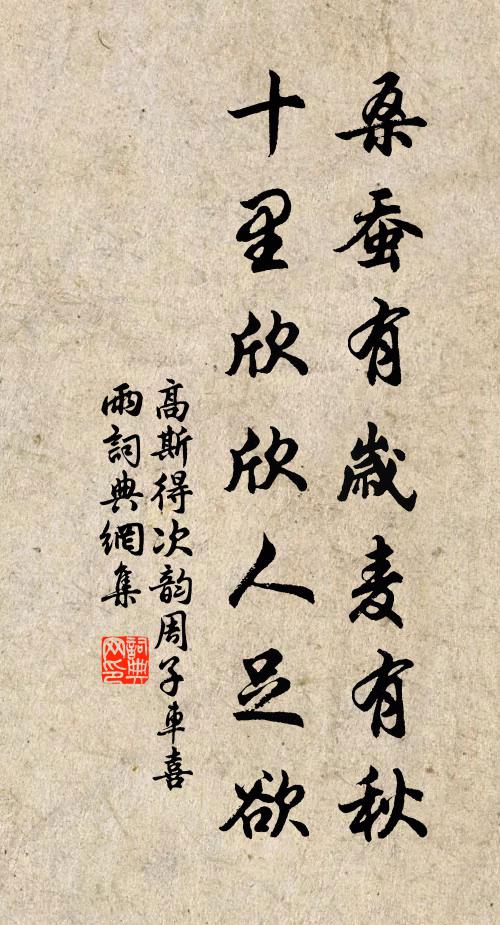 桑蚕有歲麦有秋
十里欣欣人足欲
高斯得次韵周子車喜
雨詞典網集
詞典
网印